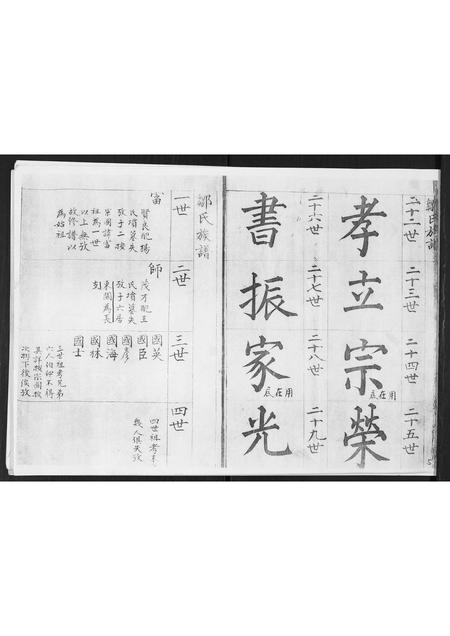 鄒氏族譜
二十二世
二十三世
二十四世
二十五世
孝立宗榮
底在用
二十六世
二十七世
二十八世
二十九世
書振家光
底在用
5
鄒氏族譜
一世
二世
三世
四世
富
賢良配楊
氏墳墓失
攷子二按
宋閣諱富
祖爲一世
以上無攷
故修譜以
為始祖
師
茂才配王
氏墳墓失
攷子六居
東關爲長
支
國英
國臣
國彥
國海
國林
國士
三世祖考兄弟
六人伯仲不得
其詳按宗圖敘
次列下按後攷
四世祖考
幾人俱失攷